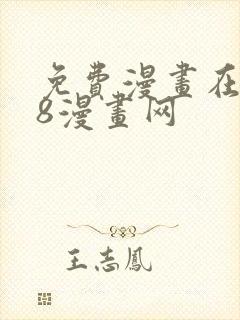 免費漫畫在
8漫畫网
王志鳳